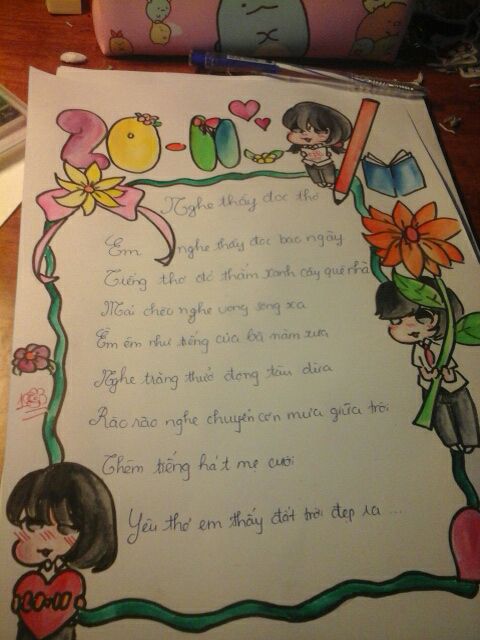 20-11
Nghe thầy đọc thơ
Em nghe thầy đọc bao ngày
Tiếng thơ đỏ thắm xanh cây quê nhà
Mái chèo nghe vọng sông xa
Êm êm như tiếng của bà năm xưa
Nghe trăng thuở động tàu dừa
Rào rào nghe chuyển cơn mưa giữa trời
Thêm tiếng hát mẹ cười
Yêu thơ em thấy đất trời đẹp ra ...